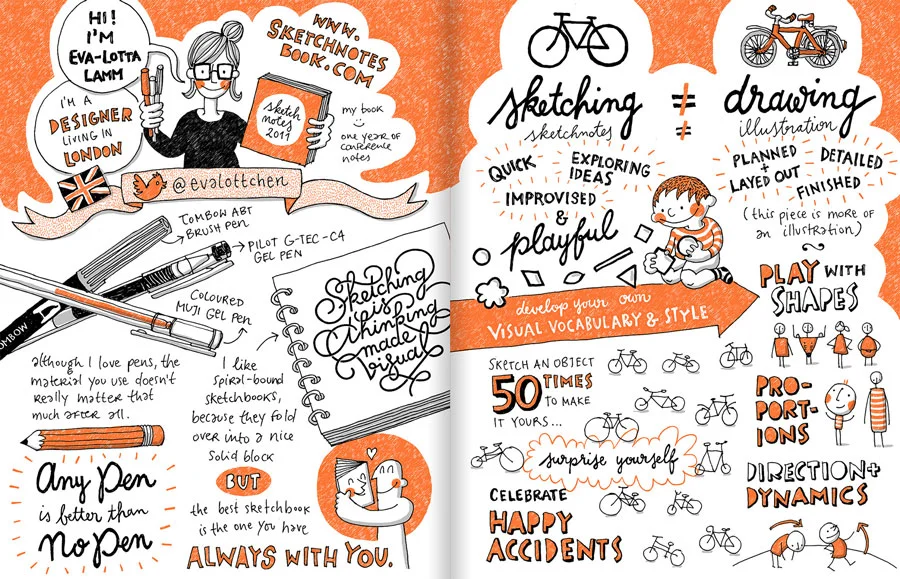 HI!
I'M
EVA-LOTTA
LAMM
I'M A
DESIGNER
LIVING IN
LONDON
WWW.
SKETCHNOTES
BOOK.COM
sketch
notes
2011
my book
one year of
conference
notes
@evalottchen
TOMBOW ABT
BRUSH PEN
PILOT G-TEC-C4
GEL PEN
COLOURED
MUJI GEL PEN
TOMBOW
Sketching
is
thinking
made
visual
although I love pens, the
material you use doesn't
really matter that
much after all.
I like
spiral-bound
sketchbooks,
because they fold
over into a nice
solid block
Any Pen
is better than
No Pen
BUT
the best sketchbook
is the one you have
ALWAYS WITH YOU.
sketching ≠ drawing
sketchnotes ≠ illustration
QUICK
EXPLORING
IDEAS
IMPROVISED
&
playful
PLANNED
+
LAYED OUT
DETAILED
FINISHED
(this piece is more of
an illustration)
develop your own
VISUAL VOCABULARY & STYLE
PLAY WITH
SHAPES
SKETCH AN OBJECT
50 TIMES
TO MAKE
IT YOURS...
surprise yourself
CELEBRATE
HAPPY
ACCIDENTS
PRO-
PORT-
IONS
DIRECTION+
DYNAMICS